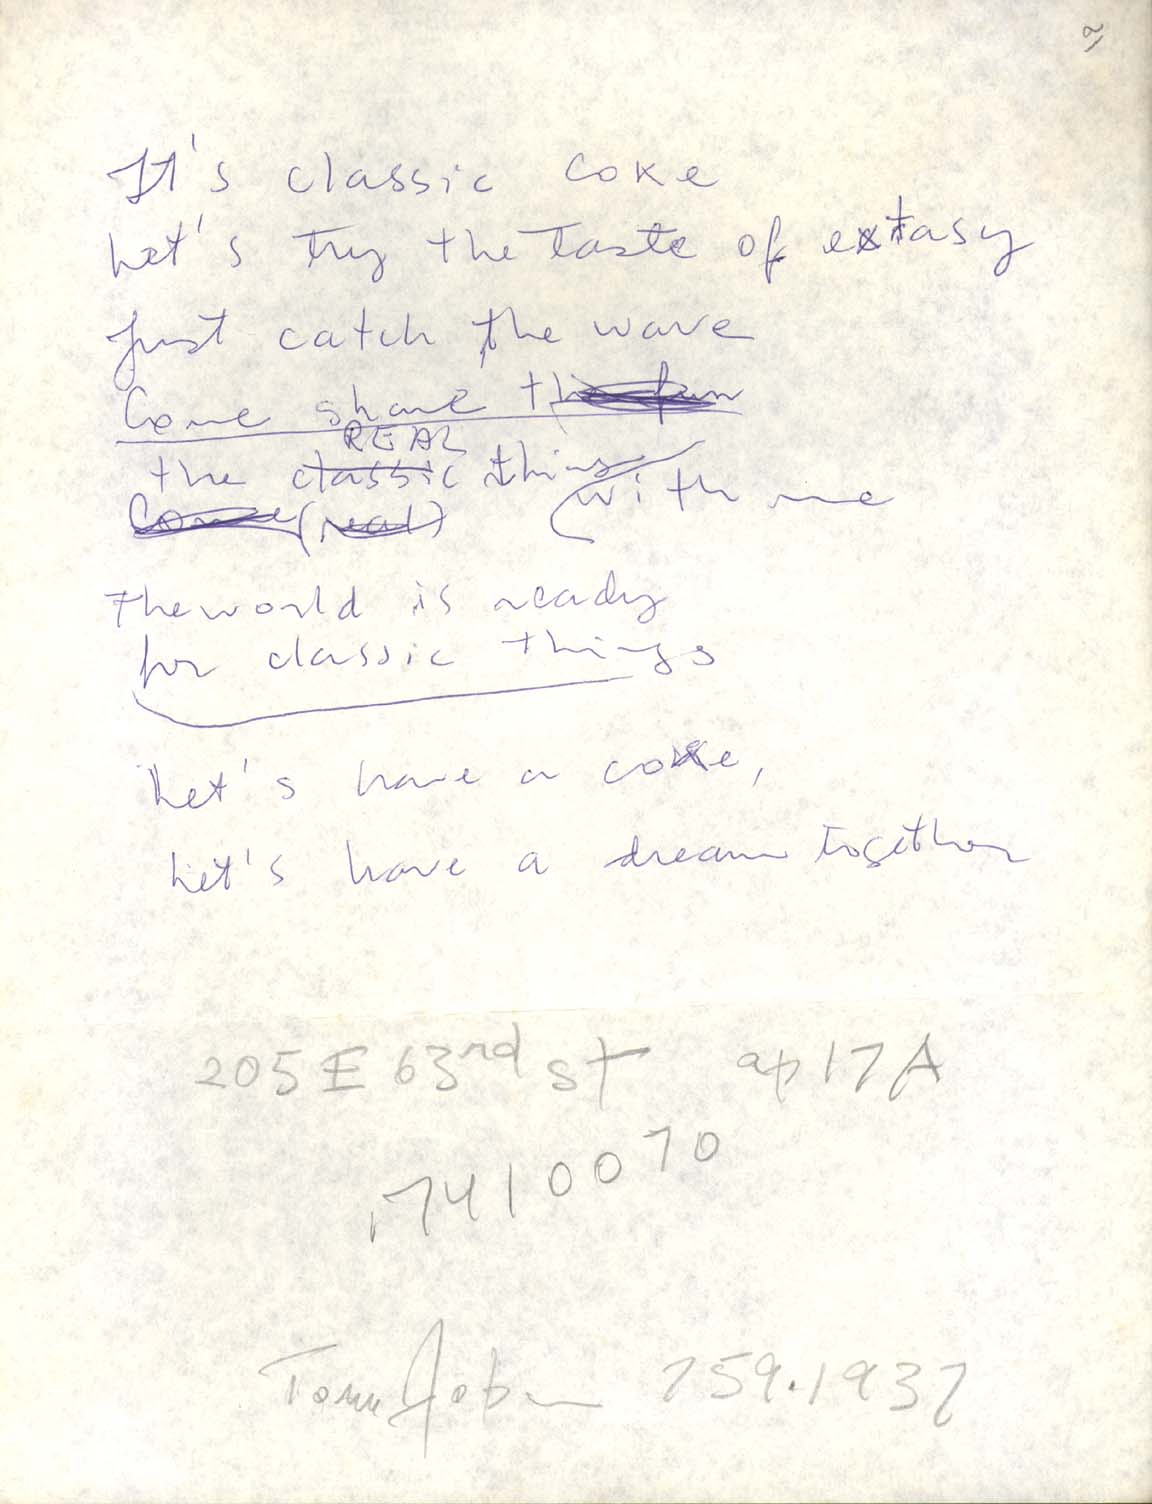 2
It's classic coke
Let's try the taste of extasy
Just catch the wave
Come share the fun
REAL
the classic thing with me
Come (real)
The world is ready
for classic things
Let's have a coke,
Let's have a dream together
205 E 63rd st ap 17A
7410070
Tom Jobim 759.1937